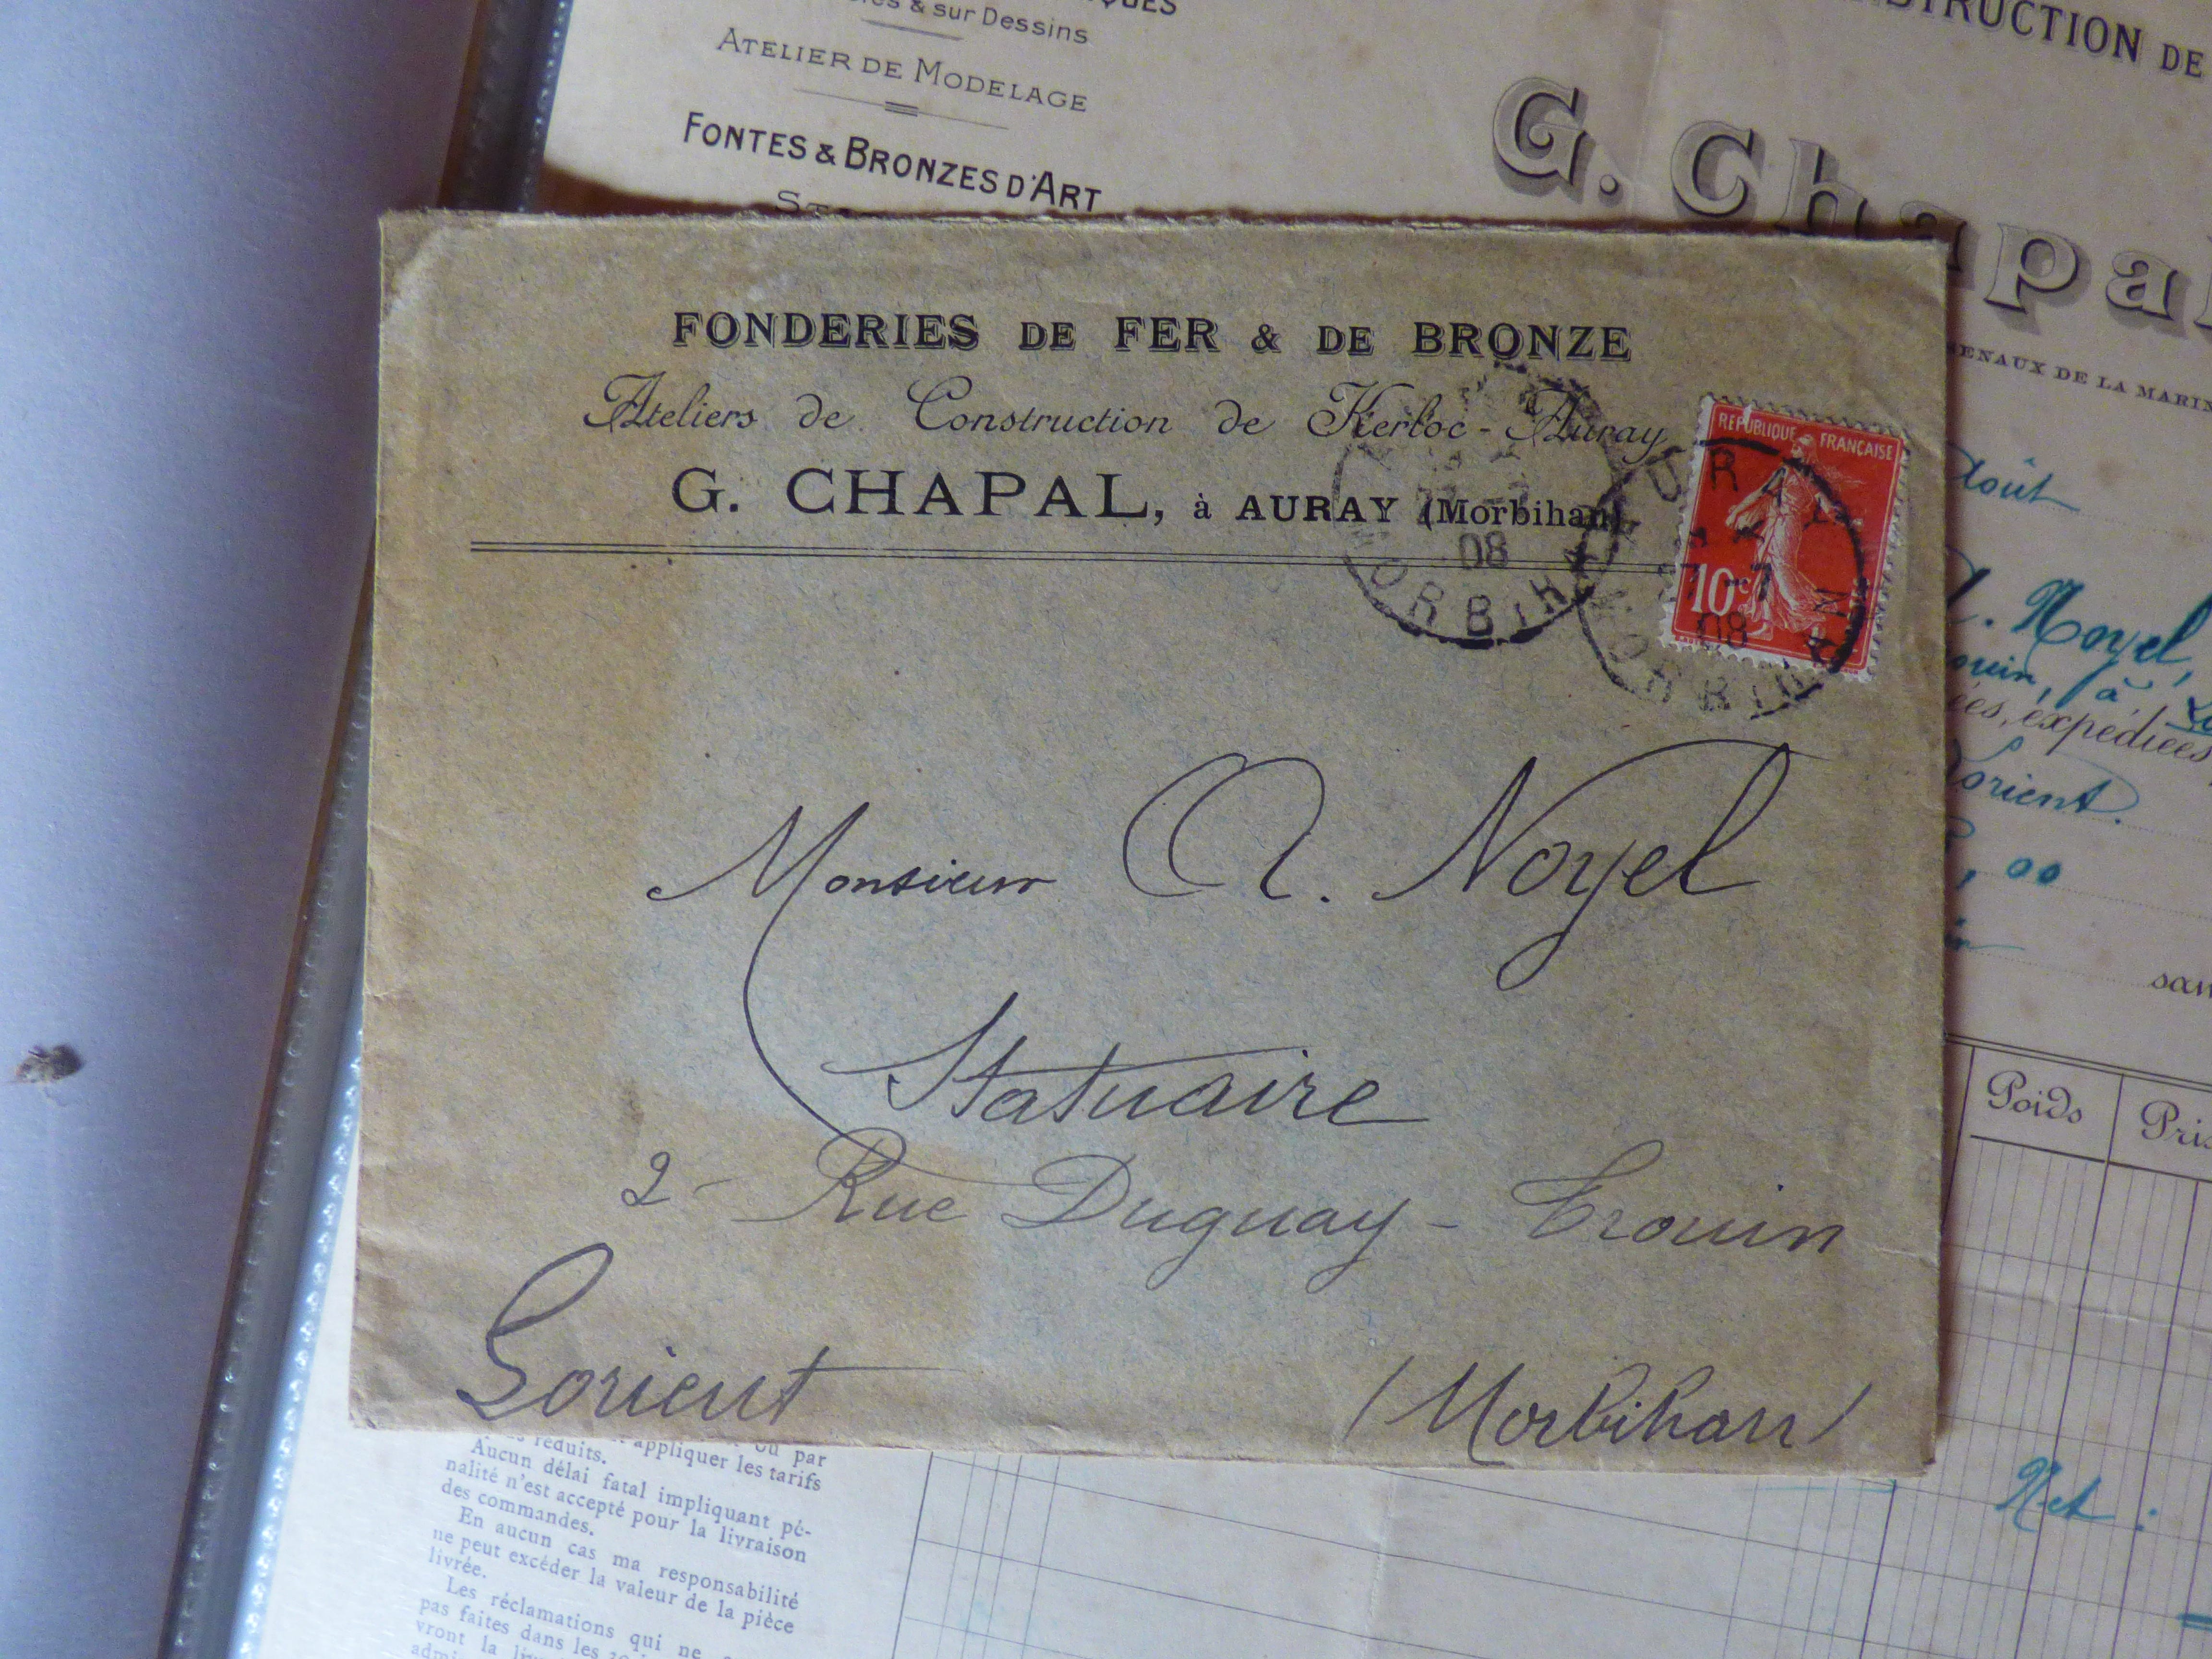 & sur Dessins
ATELIER DE MODELAGE
FONTES & BRONZES D'ART
CONSTRUCTION DE
G. Chapal
DE LA MARINE
FONDERIES DE FER & DE BRONZE
Ateliers de Construction de Kerloc-Auray
G. CHAPAL, à AURAY (Morbihan)
REPUBLIQUE FRANÇAISE
10c
08
MORBIHAN
27-7
08
MORBIHAN
Monsieur A. Noyel
Statuaire
2- Rue Duguay-Trouin
Lorient (Morbihan)
Août
Noyel,
à
expédiées
Lorient.
,00
Poids
Net :
ou par
réduits. appliquer les tarifs
Aucun délai fatal impliquant pé-
nalité n'est accepté pour la livraison
des commandes.
En aucun cas ma responsabilité
ne peut excéder la valeur de la pièce
livrée.
Les réclamations qui ne
pas faites dans les
vront la